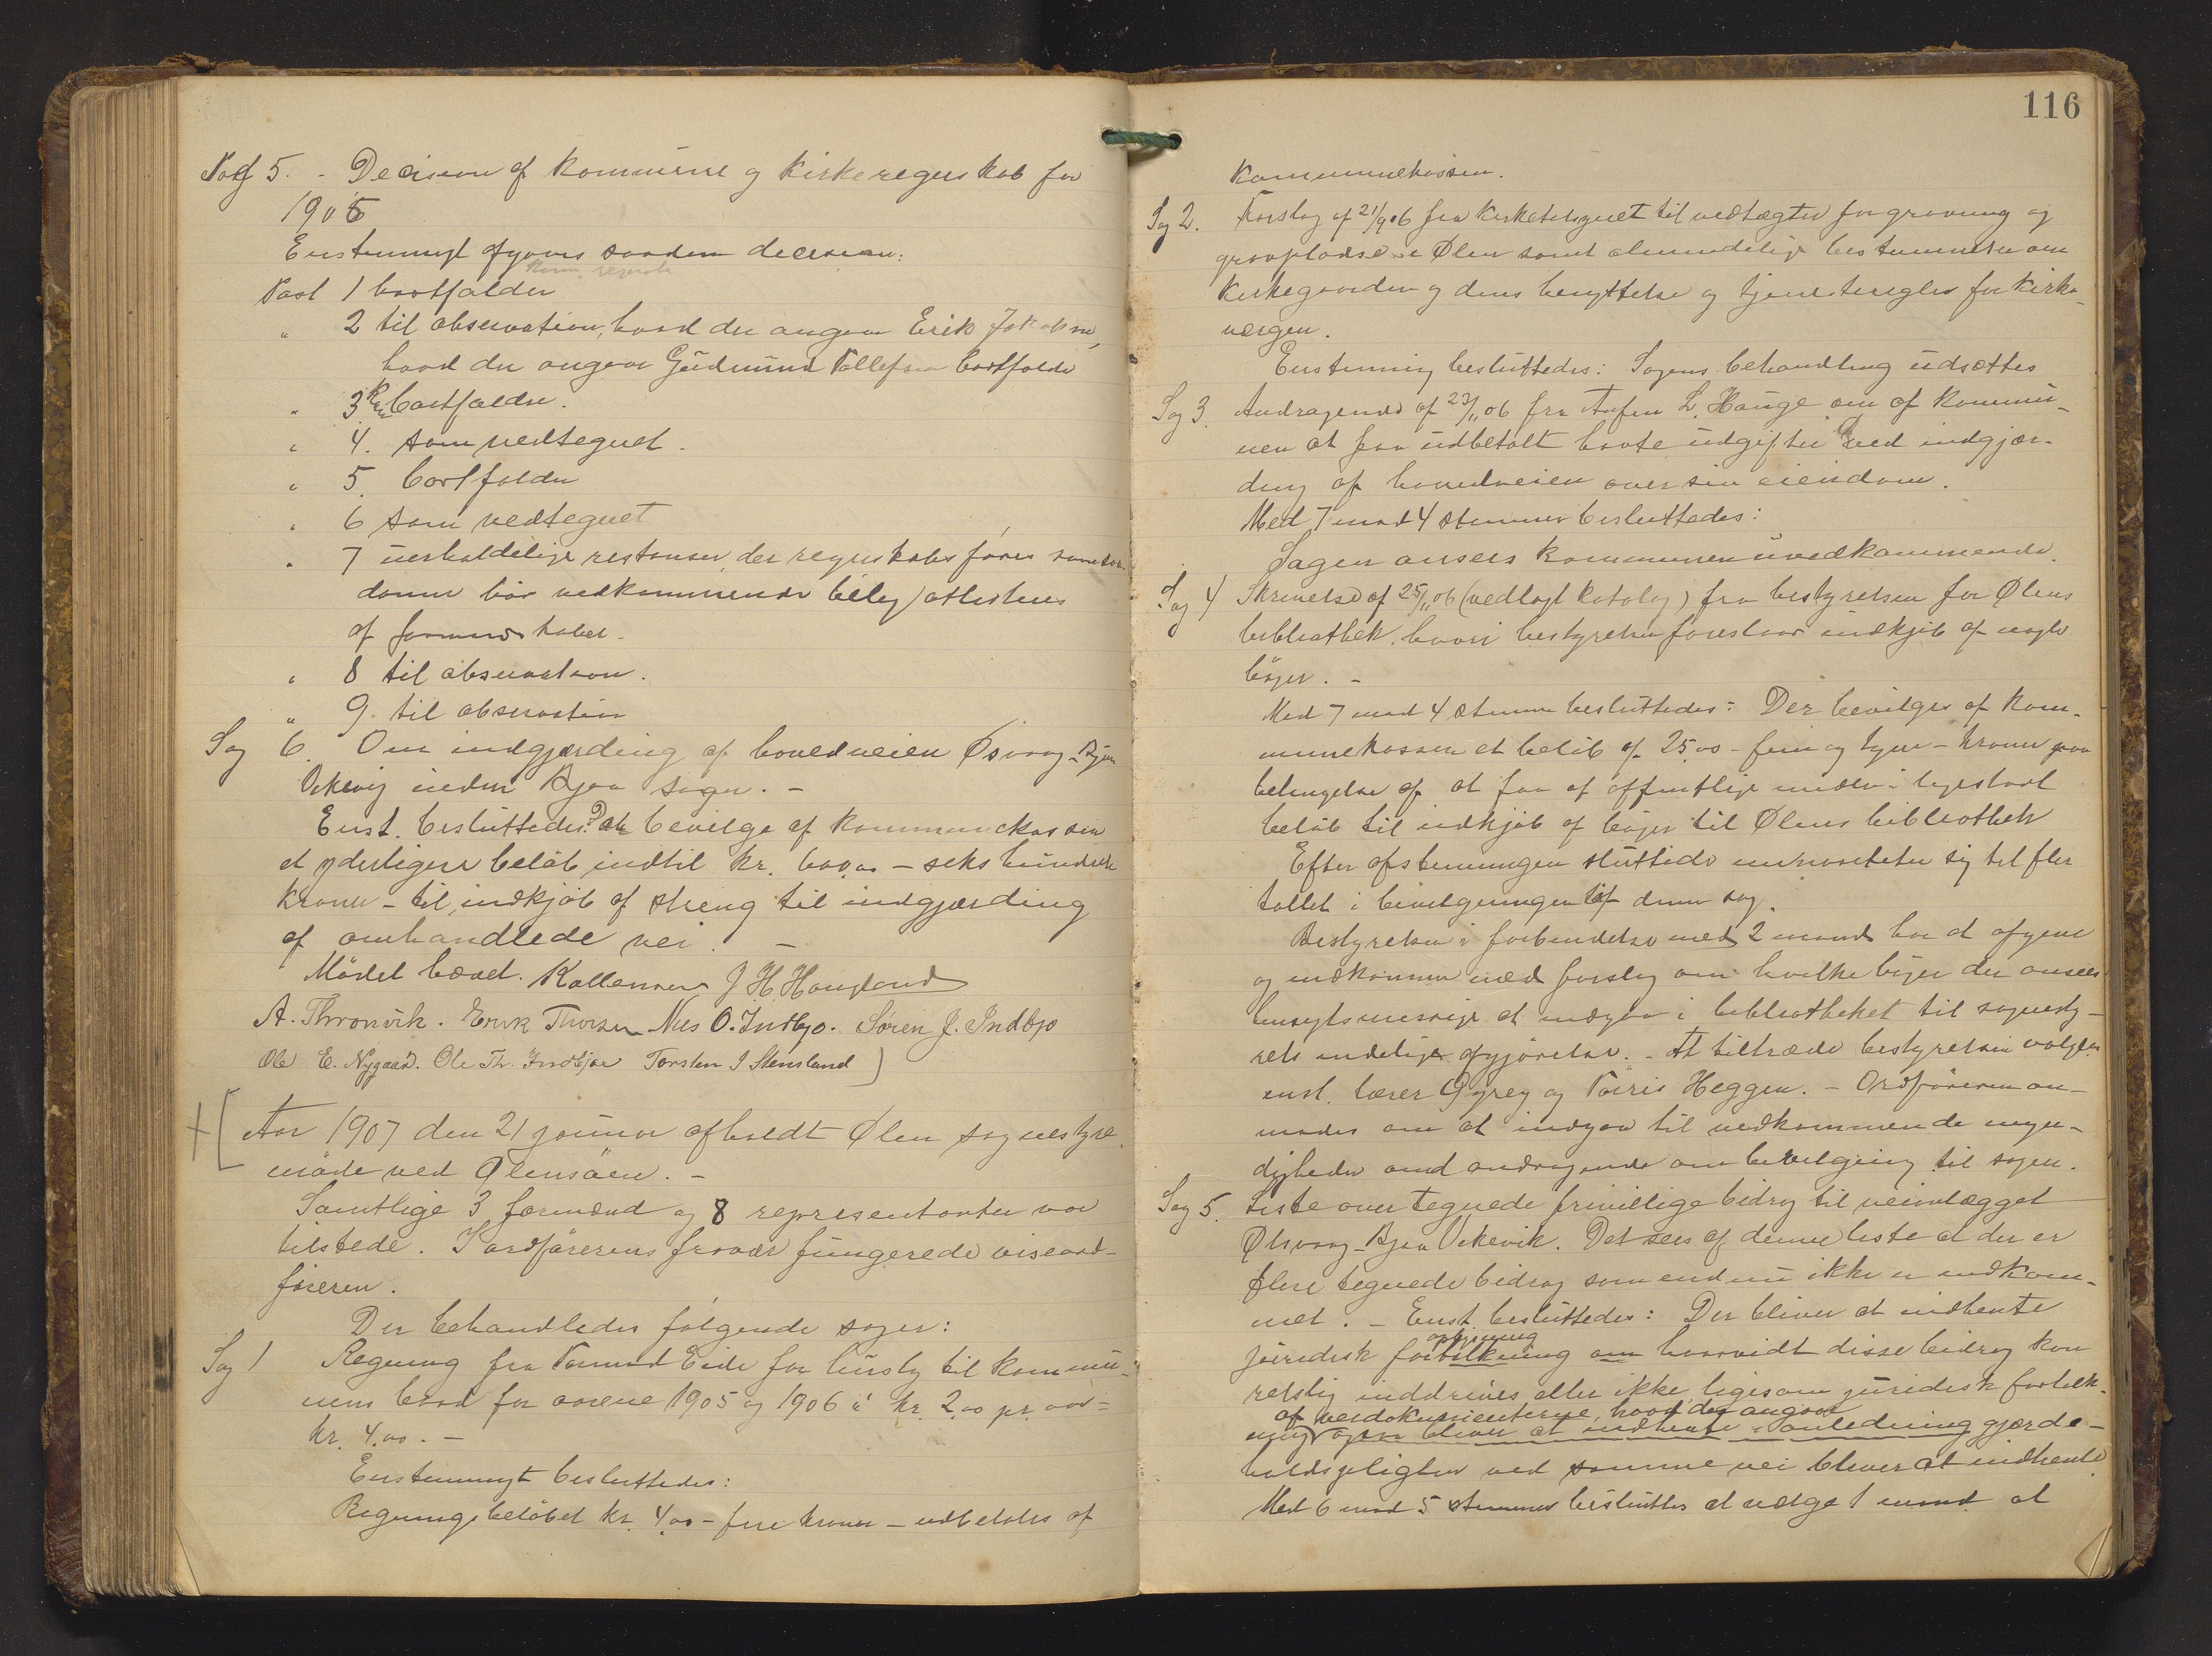 Sag 5. - Decision af kommune og kirkeregnskab for
1905
Enstemmigt afgaves saadan decision:
Post 1 bortfalder
" 2 til observation, hvad der angaar Erik Jakobsen,
hvad der angaar Gudmund Tollefsen bortfalder
" 3 bortfalder.
" 4. som vedtegnet.
" 5. bortfalder
" 6 som vedtegnet
" 7 uerholdelige restanser, der regnskabsføres som saa-
danne bør vedkommende bilag attesteres
af formandskabet.
" 8 til observation.
" 9. til observation
Sag 6. Om indgjerding af hovedveien Ølsvaag-Bjoa
Vikevig inden Bjoa sogn. -
Enst. besluttedes: At bevilge af kommunekassen
et yderligere beløb indtil kr. 600,00 - seks hundrede
kroner - til indkjøb af streng til indgjerding
af omhandlede vei. -
Mødet hævet. J H Haugland
A. Thronvik. Erik Thorsen Nils O. Indbjo. Søren J. Indbjo
Ole E. Nygaard. Ole Th. Indbjoe Torsten J Stensland
Aar 1907 den 21 januar afholdt Ølen sognestyre
møde ved Ølensøen. -
Samtlige 3 formænd og 8 representanter var
tilstede. I ordførerens fravær fungerede viseord-
føreren.
Der behandledes følgende sager:
Sag 1 Regning fra Eide for husly til kommu-
nens baad for aarene 1905 og 1906 á kr. 2,00 pr. aar =
kr. 4,00. -
Enstemmigt besluttedes:
Regningsbeløbet kr. 4,00 - fire kroner - udbetales af
116
kommunekassen.
Sag 2. Forslag af 21/9 06 fra kirketilsynet til vedtægter for gravning og
gravpladse i Ølen samt almindelige bestemmelser om
kirkegaarden og dens benyttelse og tjenesteregler for kirke-
vergen.
Enstemmig besluttedes: Sagens behandling udsættes
Sag 3. Andragende af 23/11 06 fra L. Hauge om af kommu-
nen at faa udbetalt havte udgifter ved indgjær-
ding af hovedveien over sin eiendom.
Med 7 mod 4 stemmer besluttedes:
Sagen ansees kommunen uvedkommende.
Sag 4 Skrivelse af 25/11 06 (vedlagt katalog) fra bestyrelsen for Ølens
bibliothek, hvori bestyrelsen foreslaar indkjøb af nogle
bøger. -
Med 7 mod 4 stemmer besluttedes: Der bevilges af kom-
munekassen et beløb af 25,00 - fem og tyve - kroner paa
betingelse af at faa af offentlige midler ligestort
beløb til indkjøb af bøger til Ølens bibliothek
Efter afstemningen sluttede minoriteten sig til fler
tallet i bevilgningen af denne sag.
Bestyrelsen i forbindelse med 2 mænd har at afgive
og indkomme med forslag om hvilke bøger der ansees
hensigtsmessige at indgaa i bibliotheket til sognesty-
rets endelige afgjørelse. - At tiltræde bestyrelsen valgtes
enst. lærer Øyrey og Heggen. - Ordføreren an-
modes om at indgaa til vedkommende myn-
digheder med andragende om bevilgning til sagen.
Sag 5. Liste over tegnede frivillige bidrag til veianlægget
Ølsvaag-Bjoa Vikevik. Det sees af denne liste at der er
flere tegnede bidrag som endnu ikke er indkom-
met. - Enst. besluttedes: Der bliver at indhente
oplysning
juridisk fortolkning om hvorvidt disse bidrag kan
retslig inddrives eller ikke, ligesom juridisk fortolk-
af veidokumenterne, hvad der angaar
ning ogsaa bliver at indhente i anledning gjærde-
holdspligten ved samme vei bliver at indhente.
Med 6 mod 5 stemmer besluttes at vælge 1 mand at